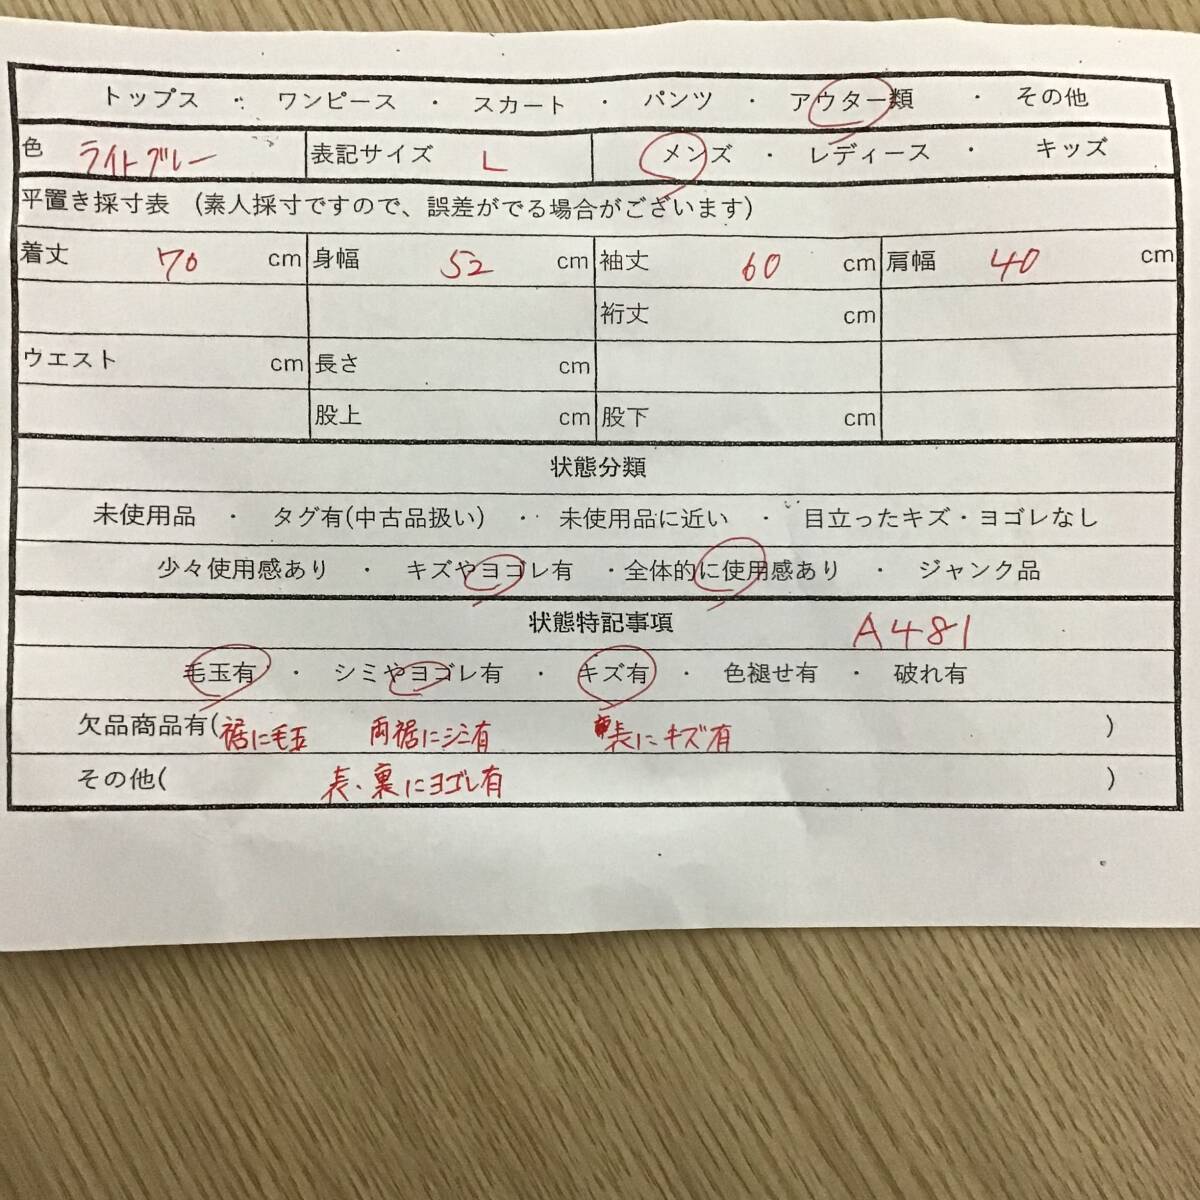 トップス ・ ワンピース ・ スカート ・ パンツ ・ アウター類 ・ その他
色 ライトグレー 表記サイズ L メンズ ・ レディース ・ キッズ
平置き採寸表 (素人採寸ですので、誤差がでる場合がございます)
着丈 70 cm 身幅 52 cm 袖丈 60 cm 肩幅 40 cm
裄丈 cm
ウエスト cm 長さ cm
股上 cm 股下 cm
状態分類
未使用品 ・ タグ有(中古品扱い) ・ 未使用品に近い ・ 目立ったキズ・ヨゴレなし
少々使用感あり ・ キズやヨゴレ有 ・全体的に使用感あり ・ ジャンク品
状態特記事項 A481
毛玉有 ・ シミやヨゴレ有 ・ キズ有 ・ 色褪せ有 ・ 破れ有
欠品商品有(裾に毛玉 両裾にシミ有 表にキズ有 )
その他( 表、裏にヨゴレ有 )